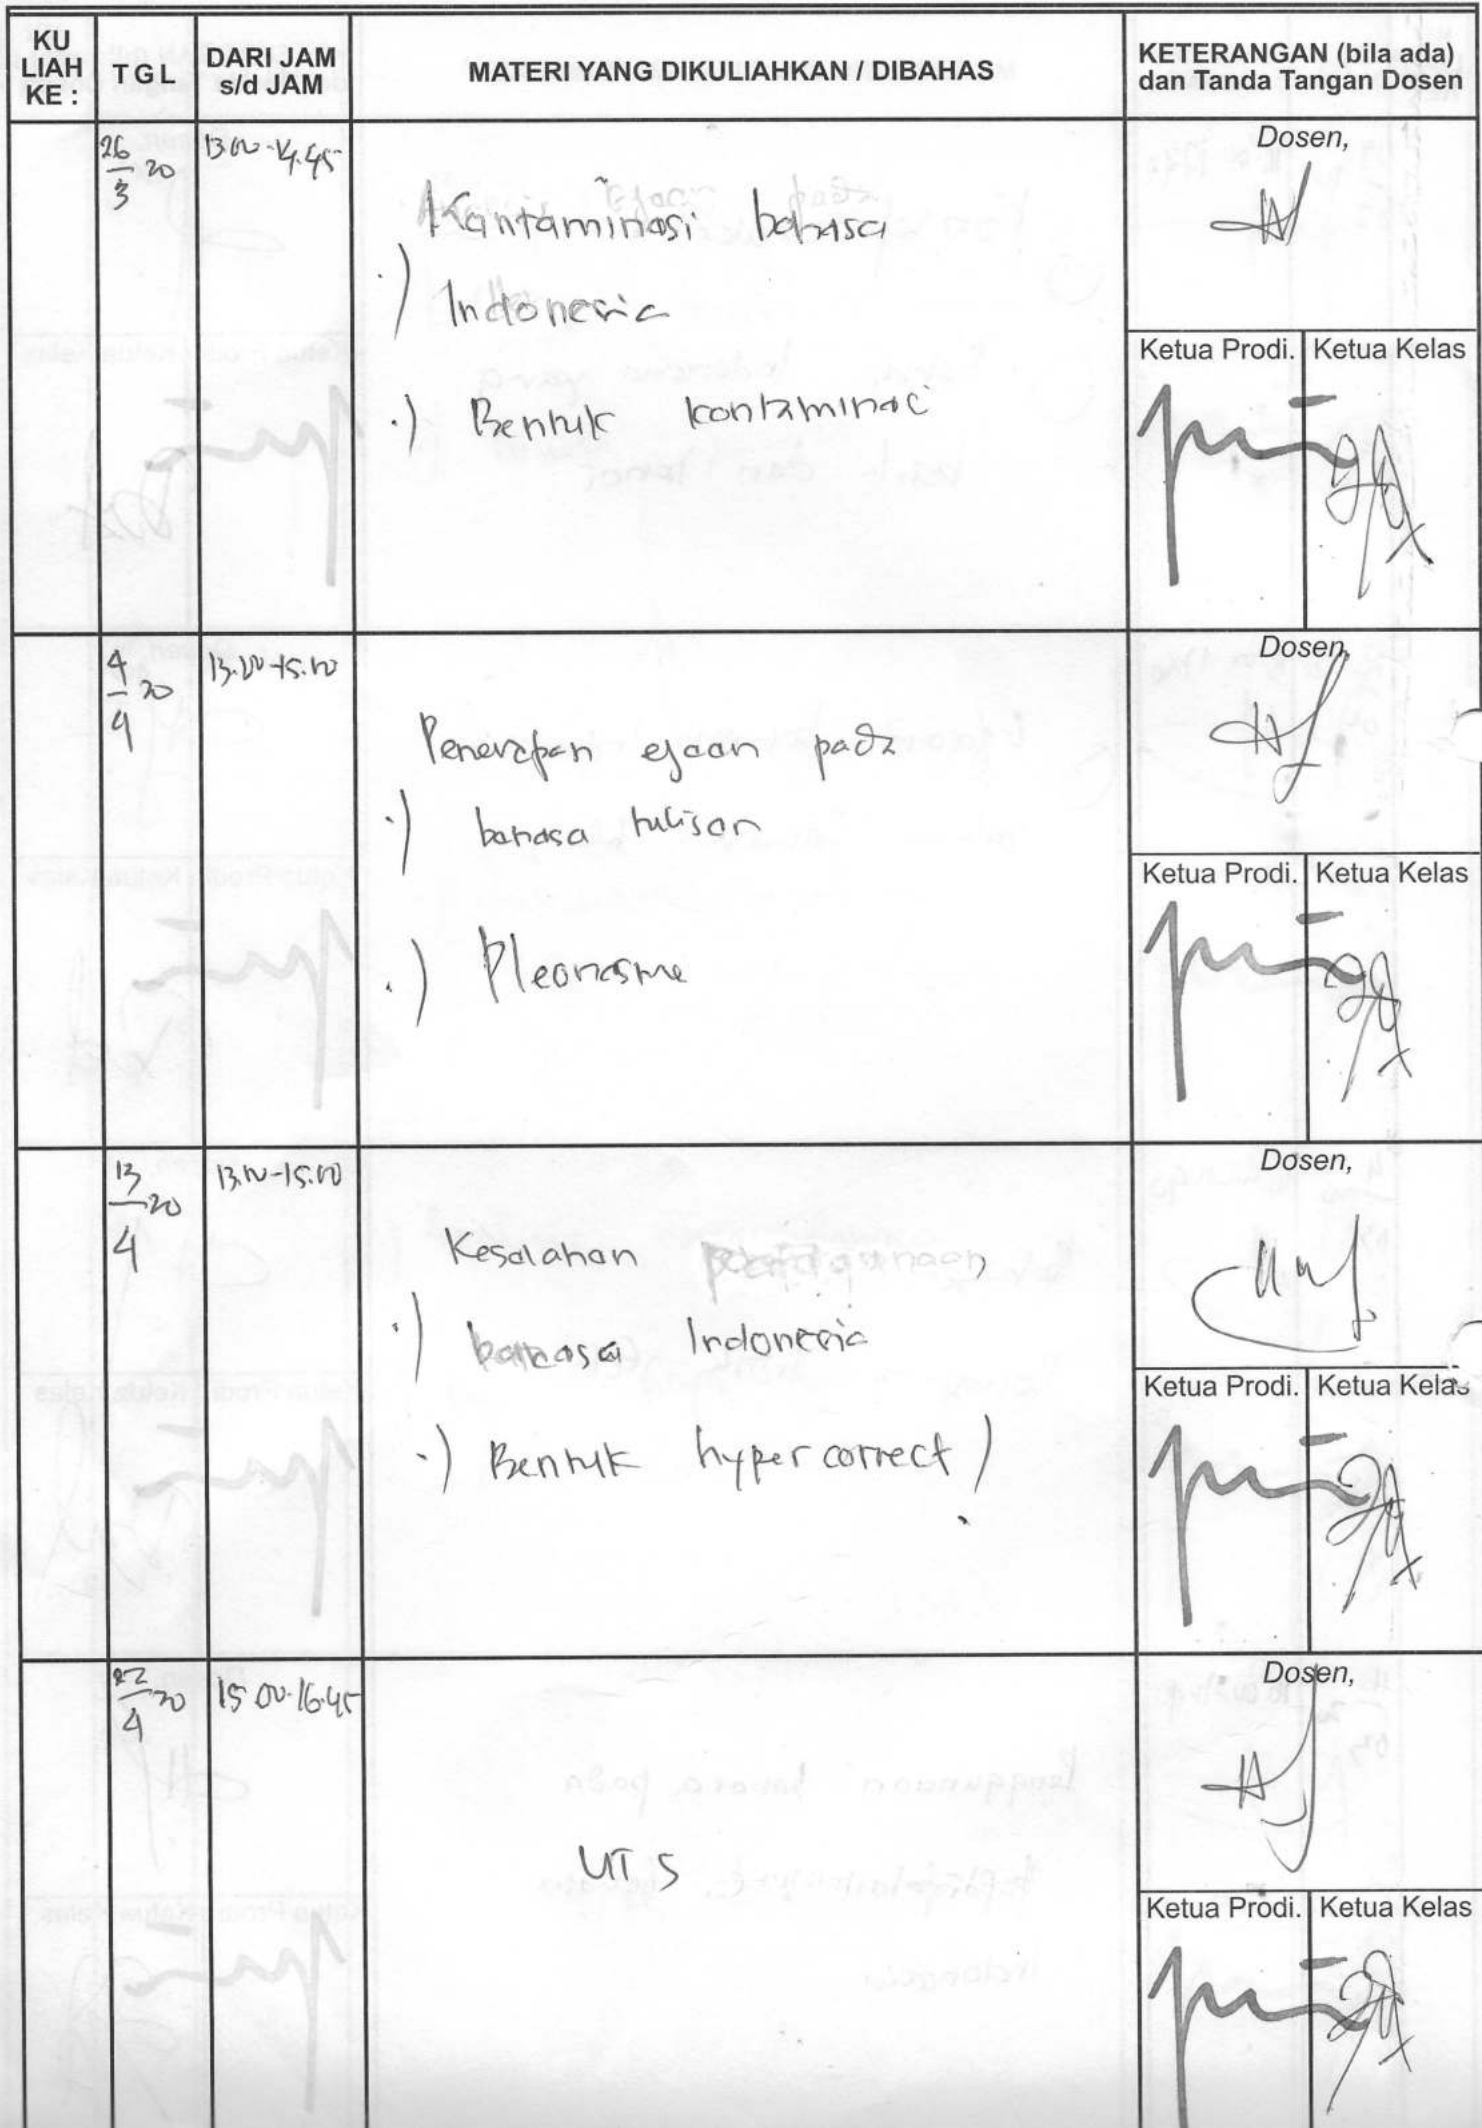 KU LIAH KE :
TGL
DARI JAM s/d JAM
MATERI YANG DIKULIAHKAN / DIBAHAS
KETERANGAN (bila ada) dan Tanda Tangan Dosen
26/3 20
13.00-14.45
Kontaminasi bahasa
·) Indonesia
·) Bentuk kontaminasi
Dosen,
Ketua Prodi.
Ketua Kelas
4/4 20
13.00-15.00
Penerapan ejaan pada
·) bahasa tulisan
·) Pleonasme
Dosen,
Ketua Prodi.
Ketua Kelas
13/4 20
13.00-15.00
Kesalahan penggunaan
·) bahasa Indonesia
·) Bentuk hypercorrect )
Dosen,
Ketua Prodi.
Ketua Kelas
22/4 20
15.00-16.45
UTS
Dosen,
Ketua Prodi.
Ketua Kelas